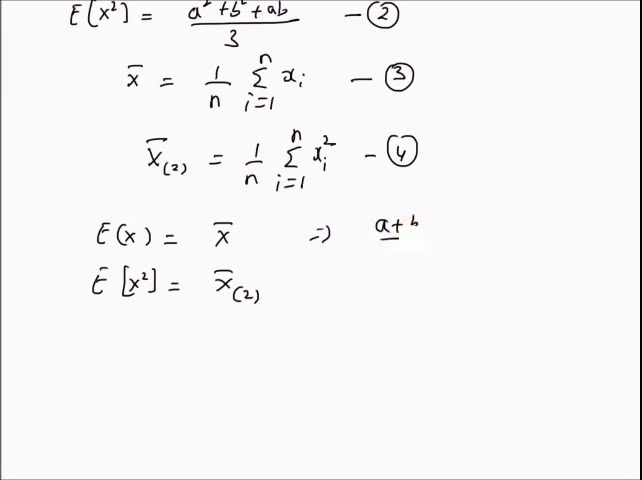 E[x²] = a² + b² + ab / 3 — ②
x̄ = 1/n Σ_{i=1}^{n} xᵢ — ③
X̄₍₂₎ = 1/n Σ_{i=1}^{n} xᵢ² — ④
E(x) = x̄ ⇒ a+b
E[x²] = x̄₍₂₎